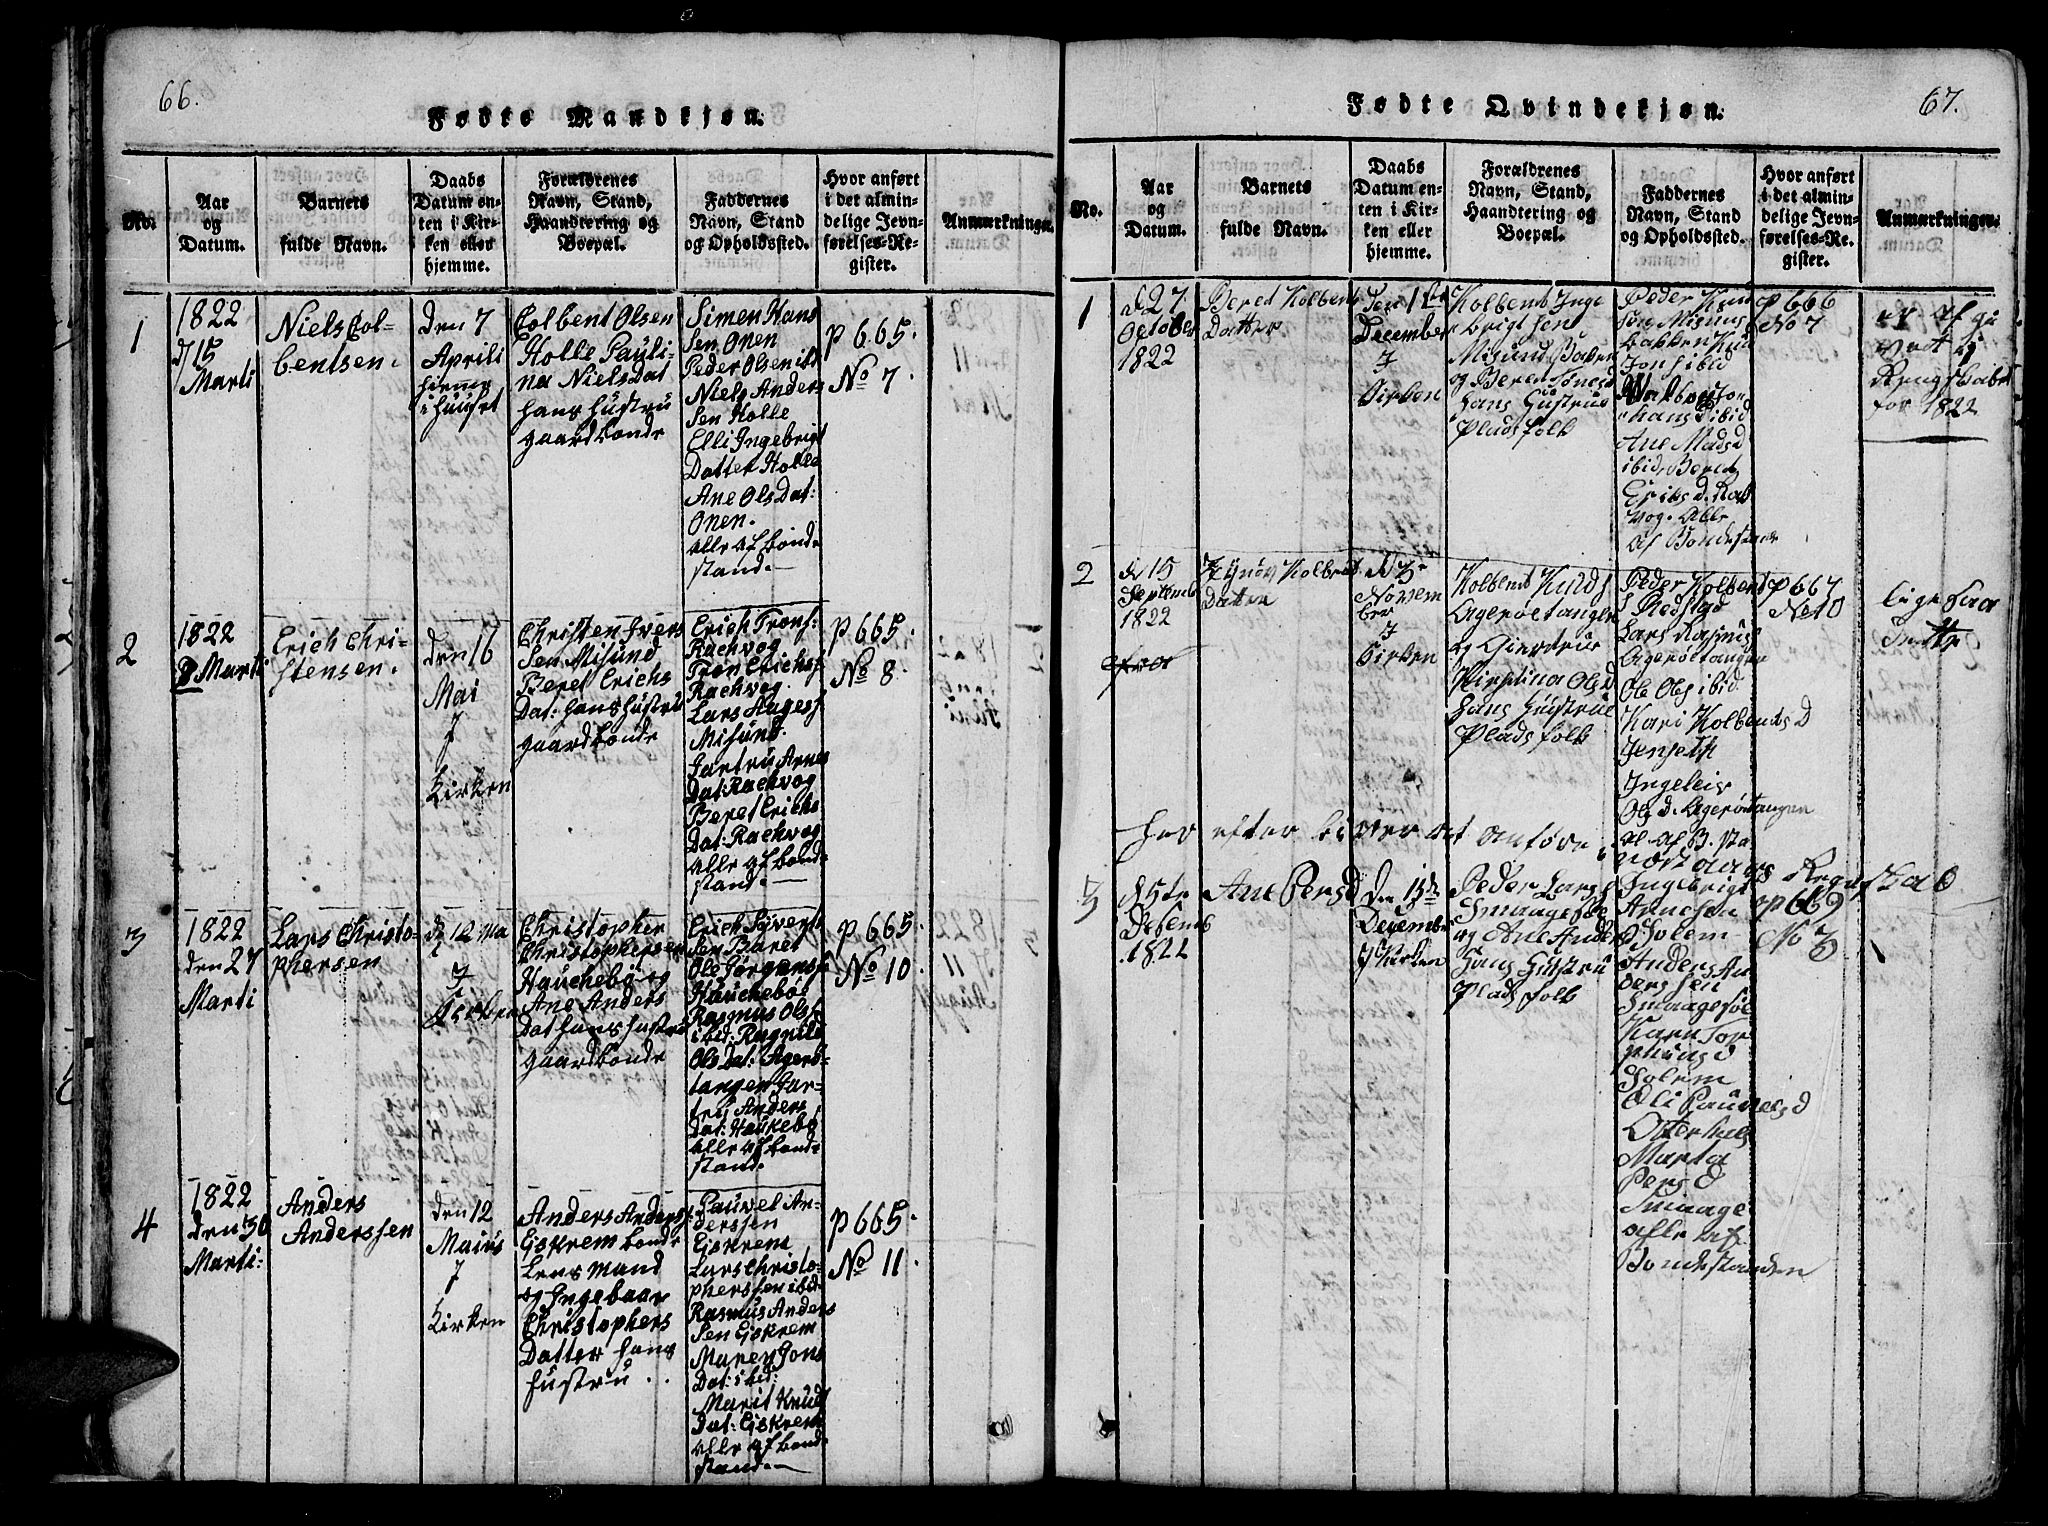 66.
Fødte Mandkjøn.
No.
Aar
og
Datum.
Barnets
fulde Navn.
Daabs
Datum en-
ten i Kir-
ken eller
hjemme.
Forældrenes
Navn, Stand,
Haandtering og
Boepæl.
Faddernes
Navn, Stand
og Opholdssted.
Hvor anført
i det almin-
delige Jevn-
førelses-Re-
gister.
Anmærkninger.
1
1822
d 15
Marti
Niels Col-
bentsen.
Den 7
Aprili
hiemme
i huuset
Colbent Olsen
Holle Pauli-
na Niels Dat
hans hustru
gaardbonde
Simen Hans
Sen Onen
Peder Olsen ibd
Niels Anders
Sen Holle
Elli Ingebrigt
Datter Holle
Ane Ols Dat:
Onen.
alle af bonde
stand.
p 665.
No 7.
2
1822
8 Marti
Erich Chri-
stensen.
den 16
Mai
J
Kirken
Christen Ivers
Sen Misund
Beret Erichs
Dat: hans hustru
gaardbonde
Erich Trons:
Rachvog
Tron Erichs:
Rachvog
Lars Aages:
Misund.
Gartru Arnes
Dat: Rachvog
Beret Erichs
Dat: Rachvog
alle af bond-
stand.
p 665.
No 8.
3
1822
den 27
Marti
Lars Christo-
phersen
d 12 Ma
J
Kirken
Christopher
Christophersen
Hauchebø og
Ane Anders
Dat hans hustru
gaardbonde
Erich Sivert
Sen Baret
Ole Jørgens:
Hauchebøe
Rasmus Ols:
ibid: Ragnilde
Ols Dat: Agerø-
tangen Gar-
tru Anders
Dat: Haukebø
alle af bonde
stand.
p 665.
No 10.
4
1822
den 30
Marti:
Anders
Anderssen
den 12
Maius
J
Kirken
Anders Anders:
Eiskrem bonde
Lens mand
og Ingebaar
Christophers
Datter hans
hustru.
Pauvel An-
derssen
Eiskrem
Lars Christo-
pherssen ibd
Rasmus Anders
Sen Eiskrem
Marey Jons
Dat: ibid:
Marit Knuds
Dat: Eiskrem
alle af bond
stand.
p 665.
No 11.
67.
Fødte Qvindekjøn.
No.
Aar
og
Datum.
Barnets
fulde Navn.
Daabs
Datum en-
ten i Kir-
ken eller
hjemme.
Forældrenes
Navn, Stand,
Haandtering og
Boepæl.
Faddernes
Navn, Stand
og Opholdssted.
Hvor anført
i det almin-
delige Jevn-
førelses-Re-
gister.
Anmærkninger.
1
d 27
October
1822
Beret Kolbents
Datter
Den 1ste
December
J
Kirken
Kolbent Inge
brigtsen
Misund
og Beret
Hans Hustrue
Pladsfolk
Peder Knud
Sen Misund
bakken Knud
Jons ibid
ibid
Ane Mads d
ibid Beret
Eriks d. Rak
vog. Alle
af Bondestand
p 666
No 7
er af gi
vet ej
Regnskabet
for 1822
2
d 15
Septemb
1822
Kolbents
Datter
d 3
Novem
ber
J
Kirken
Kolbent Knuds
Agerøetangen
og Giertrue
Kirstina Ols D
Hans Hustrue
Pladsfolk
Peder Kolbents
Lars Rasmus
Agerøetangen
Ole Ols ibid.
Kari Kolbents D
Ingeleis
Ols d. Agerøtangen
p 667
No 10
lige saa
her efter
3
d 5te
Desemb
1822
Ane Pers D
Den 15de
December
J Kirken
Peder Lars
Smaagesøe
og Ane Anders
Hans Hustru
Pladsfolk
Ingebrigt
Arnesen
Solem
Anders An
dersen
Smaagesøe
Karn Tor
Solem
Oli Pauvels D
Otterhals
Marta
Pers D
Smaage
alle af
Bondestanden
p 669
No 3